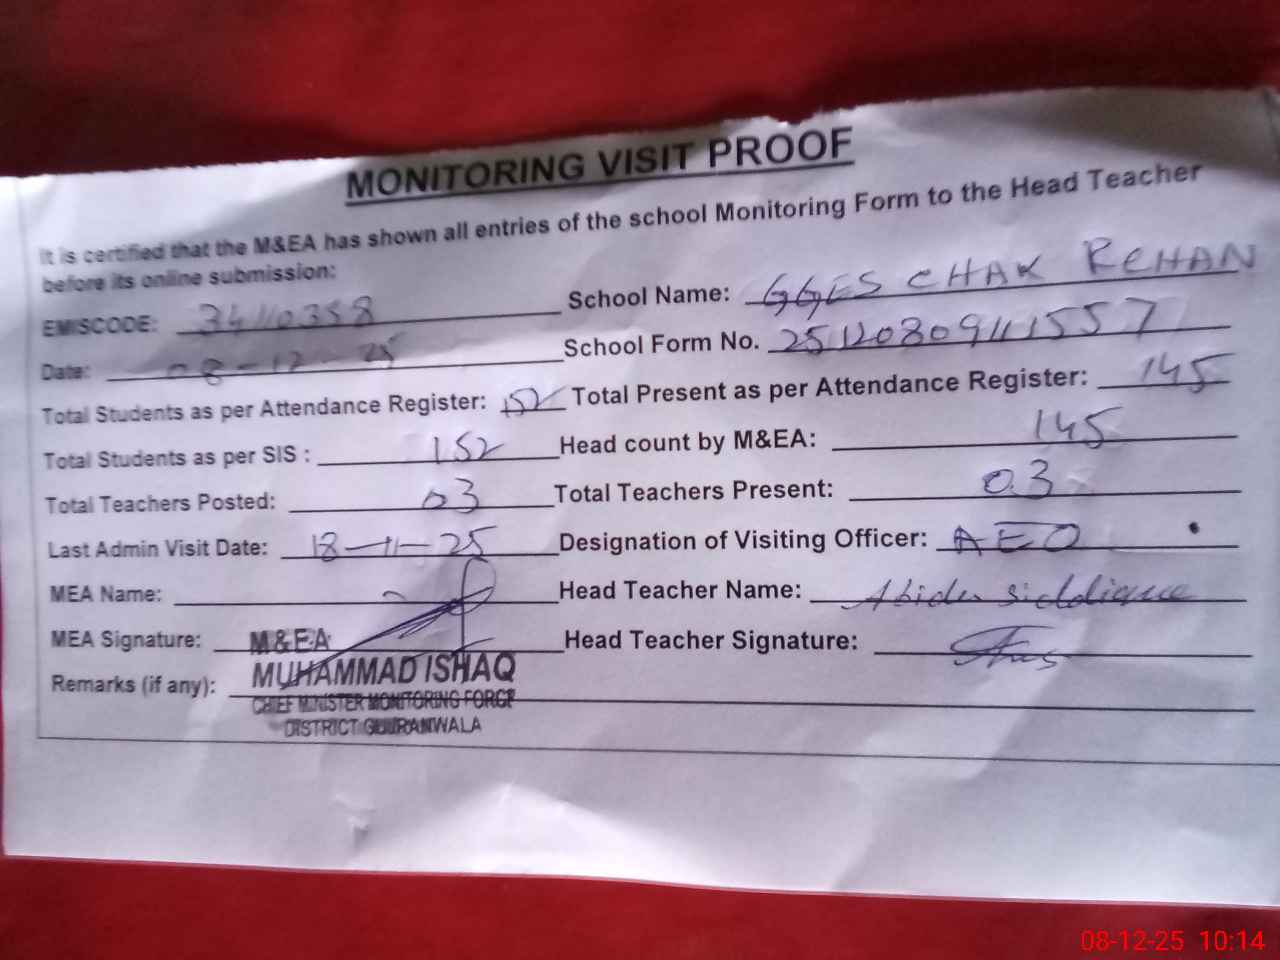 MONITORING VISIT PROOF
It is certified that the M&EA has shown all entries of the school Monitoring Form to the Head Teacher
before its online submission:
EMISCODE: 34110358 School Name: GGES CHAK REHAN
Date: 08-12-25 School Form No. 25120809111557
Total Students as per Attendance Register: 152 Total Present as per Attendance Register: 145
Total Students as per SIS : 152 Head count by M&EA: 145
Total Teachers Posted: 03 Total Teachers Present: 03
Last Admin Visit Date: 18-11-25 Designation of Visiting Officer: AEO
MEA Name: Head Teacher Name: Abida siddique
MEA Signature: Head Teacher Signature:
M&EA
Remarks (if any):
MUHAMMAD ISHAQ
CHIEF MINISTER MONITORING FORCE
DISTRICT GUJRANWALA
08-12-25 10:14